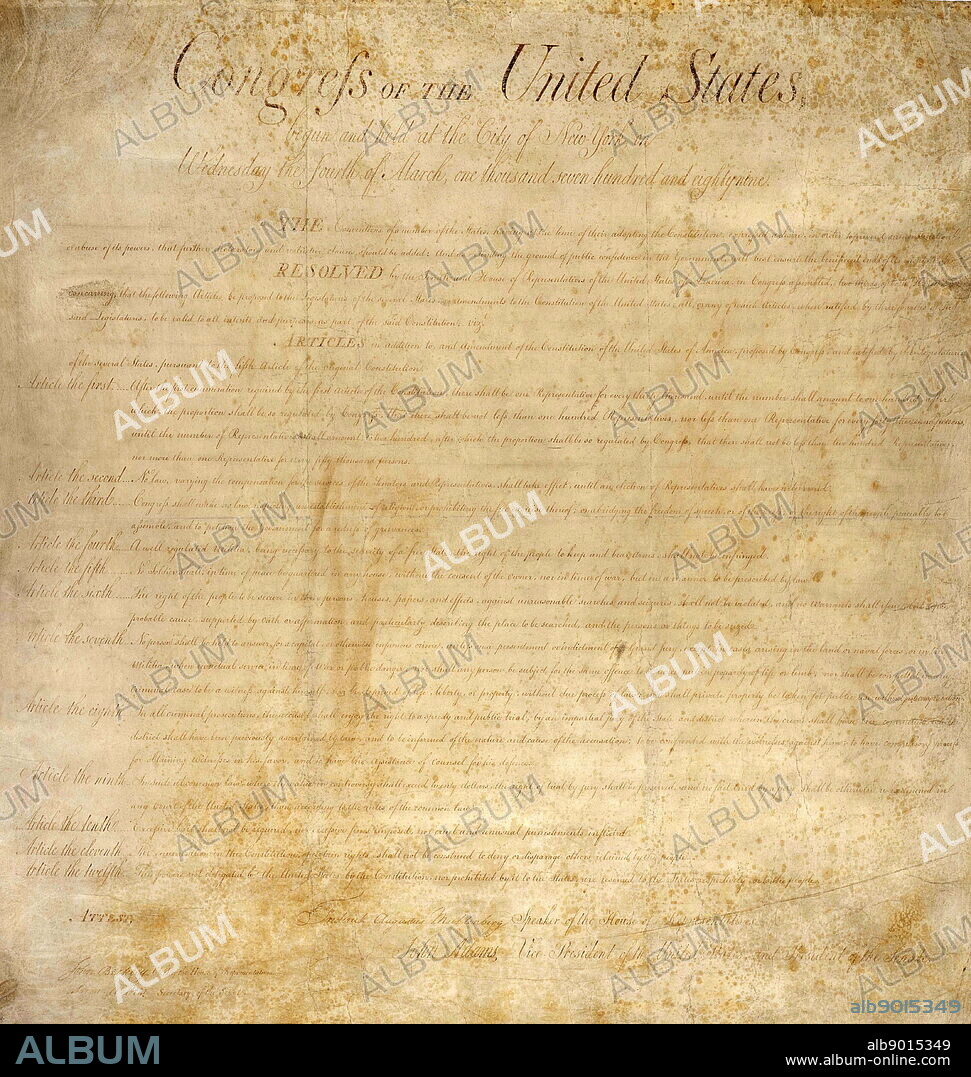 Congreſs OF THE United States,
begun and held at the City of New York, on
Wednesday the fourth of March, one thousand seven hundred and eighty nine.
THE Conventions of a number of the States, having at the time of their adopting the Constitution, expressed a desire, in order to prevent
or abuse of its powers, that further and restrictive clauses should be added: And as extending the ground of public confidence in the Government
RESOLVED by the Senate and House of Representatives of the United States of America, in Congress assembled, two thirds of both Houses
concurring, that the following Articles be proposed to the Legislatures of the several States, as amendments to the Constitution of the United States, all, or any of which Articles, when ratified by
said Legislatures, to be valid to all intents and purposes, as part of the said Constitution; vizt.
ARTICLES in addition to, and Amendment of the Constitution of the United States of America, proposed by Congress, and ratified by the Legislatures
of the several States, pursuant to the fifth Article of the original Constitution.
Article the first.... After the first enumeration required by the first article of the Constitution, there shall be one Representative for every thirty thousand, until the number shall amount to one hundred, after
which, the proportion shall be so regulated by Congress, that there shall be not less than one hundred Representatives, nor less than one Representative for every forty thousand persons,
until the number of Representatives shall amount to two hundred, after which the proportion shall be so regulated by Congress, that there shall not be less than two hundred Representatives,
nor more than one Representative for every fifty thousand persons.
Article the second... No law, varying the compensation for the services of the Senators and Representatives, shall take effect, until an election of Representatives shall have intervened.
Article the third.... Congress shall make no law respecting an establishment of religion, or prohibiting the free exercise thereof; or abridging the freedom of speech, or of the press; or the right of the people peaceably to
assemble, and to petition the Government for a redress of grievances.
Article the fourth.... A well regulated militia, being necessary to the security of a free State, the right of the people to keep and bear arms, shall not be infringed.
Article the fifth.... No Soldier shall, in time of peace be quartered in any house, without the consent of the owner, nor in time of war, but in a manner to be prescribed by law.
Article the sixth.... The right of the people to be secure in their persons, houses, papers, and effects, against unreasonable searches and seizures, shall not be violated, and no Warrants shall issue, but upon
probable cause, supported by Oath or affirmation, and particularly describing the place to be searched, and the persons or things to be seized.
Article the seventh. No person shall be held to answer for a capital, or otherwise infamous crime, unless on a presentment or indictment of a Grand jury, except in cases arising in the land or naval forces, or in the
Militia, when in actual service, in time of War or public danger; nor shall any person be subject for the same offence to be twice put in jeopardy of life or limb; nor shall be compelled in any
criminal case to be a witness against himself, nor be deprived of life, liberty, or property, without due process of law; nor shall private property be taken for public use without just compensation.
Article the eighth. In all criminal prosecutions, the accused shall enjoy the right to a speedy and public trial, by an impartial jury of the State and district wherein the crime shall have been committed, which
district shall have been previously ascertained by law, and to be informed of the nature and cause of the accusation; to be confronted with the witnesses against him; to have compulsory process
for obtaining witnesses in his favor, and to have the assistance of Counsel for his defence.
Article the ninth. In suits at common law, where the value in controversy shall exceed twenty dollars, the right of trial by jury shall be preserved, and no fact, tried by a jury, shall be otherwise re-examined in
any Court of the United States, than according to the rules of the common law.
Article the tenth. Excessive bail shall not be required, nor excessive fines imposed, nor cruel and unusual punishments inflicted.
Article the eleventh. The enumeration in the Constitution, of certain rights, shall not be construed to deny or disparage others retained by the people.
Article the twelfth. The powers not delegated to the United States by the Constitution, nor prohibited by it to the States, are reserved to the States respectively, or to the people.
ATTEST,
Frederick Augustus Muhlenberg Speaker of the House of Representatives.
John Adams, Vice President of the United States, and President of the Senate.
John Beckley, Clerk of the House of Representatives.
Secretary of the Senate.
alb9015349
ALBUM
alb9015349
www.album-online.com